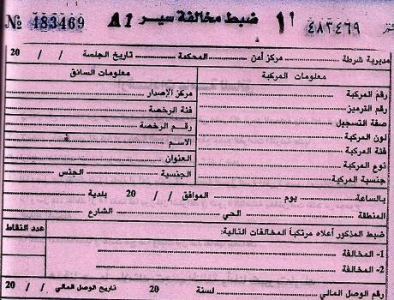 № 483469 A1 ضبط مخالفة سير أ١ ٤٨٣٤٦٩
مديرية شرطة مركز أمن المحكمة تاريخ الجلسة / / 20
معلومات المركبة معلومات السائق
رقم المركبة مركز الإصدار
رقم الترميز فئة الرخصة
صفة التسجيل رقم الرخصة
لون المركبة الاسم
فئة المركبة العنوان
نوع المركبة الجنسية الجنس
جنسية المركبة
بالساعة يوم الموافق / / 20 بلدية
المنطقة الحي الشارع
ضبط المذكور أعلاه مرتكباً المخالفات التالية: عدد النقاط
1- المخالفة
2- المخالفة
رقم الوصل المالي لسنة 20 تاريخ الوصل المالي / / 20